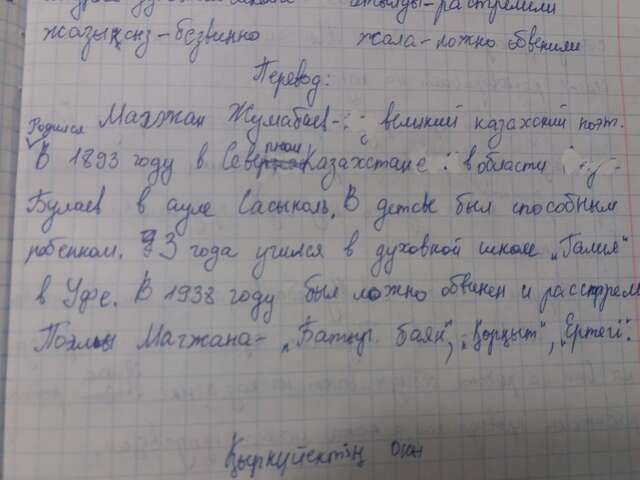 жазықсыз - безвинно
жала - ложно обвинили
Перевод:
Магжан Жумабаев - великий казахский поэт.
Родился В 1893 году в Северном Казахстане в области
Булаев в ауле Сасыколь. В детск был способным
ребенком. 3 года учился в духовной школе „Галия"
в Уфе. В 1938 году был ложно обвинен и расстрелян
Поэмы Магжана - „Батыр Баян", „Қорқыт", „Ертегі".
Қыркүйектің он